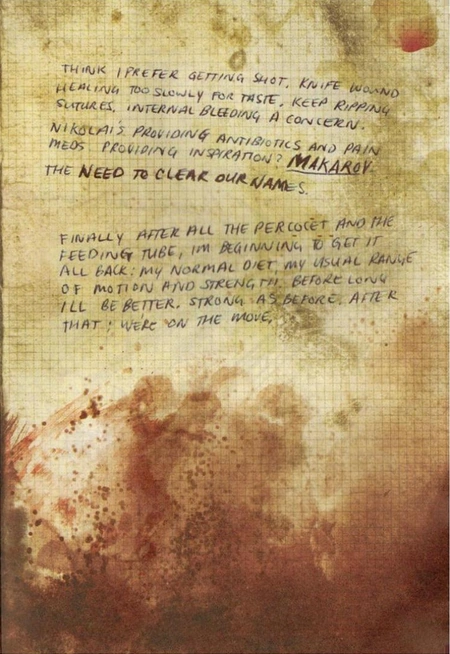 THINK I PREFER GETTING SHOT. KNIFE WOUND
HEALING TOO SLOWLY FOR TASTE. KEEP RIPPING
SUTURES. INTERNAL BLEEDING A CONCERN.
NIKOLAI'S PROVIDING ANTIBIOTICS AND PAIN
MEDS PROVIDING INSPIRATION? MAKAROV.
THE NEED TO CLEAR OUR NAMES.
FINALLY AFTER ALL THE PERCOCET AND THE
FEEDING TUBE, IM BEGINNING TO GET IT
ALL BACK: MY NORMAL DIET, MY USUAL RANGE
OF MOTION AND STRENGTH. BEFORE LONG
I'LL BE BETTER. STRONG AS BEFORE. AFTER
THAT; WERE ON THE MOVE.